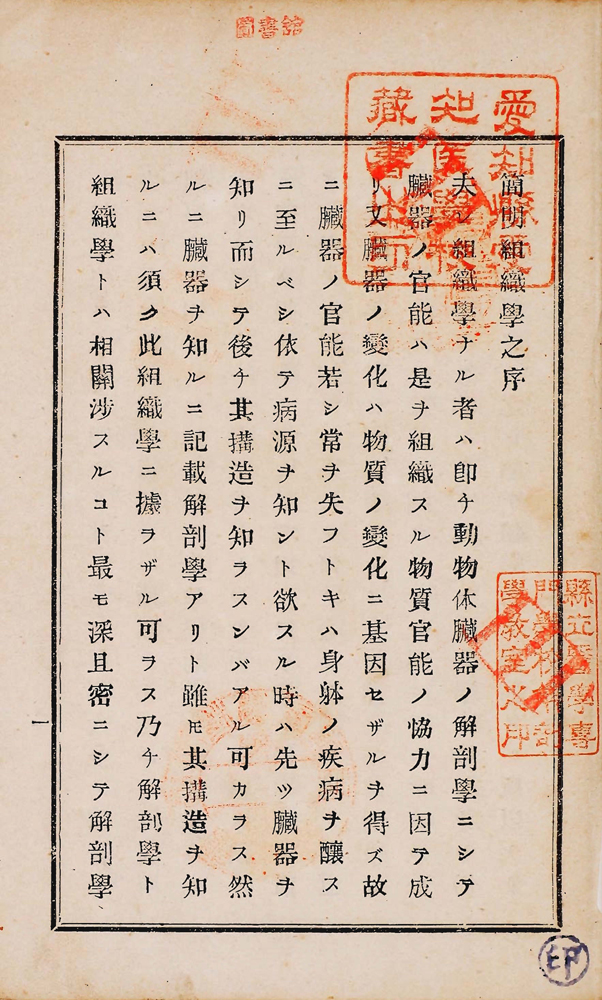 圖書館
愛知縣
知医學校
藏書之印
簡明組織學之序
夫レ組織學ナル者ハ卽チ動物体臓器ノ解剖學ニシテ
臓器ノ官能ハ是ヲ組織スル物質官能ノ恊力ニ因テ成
リ又臓器ノ變化ハ物質ノ變化ニ基因セザルヲ得ズ故
ニ臓器ノ官能若シ常ヲ失フトキハ身躰ノ疾病ヲ釀ス
ニ至ルベシ依テ病源ヲ知ント欲スル時ハ先ツ臓器ヲ
知リ而シテ後チ其搆造ヲ知ラスンバアル可カラス然
ルニ臓器ヲ知ルニ記載解剖學アリト雖㠪其搆造ヲ知
ルニハ須ク此組織學ニ據ラザル可ラス乃チ解剖學ト
組織學トハ相關渉スルコト最モ深且密ニシテ解剖學、
一
縣立醫學專
門學校
學教室之印
印